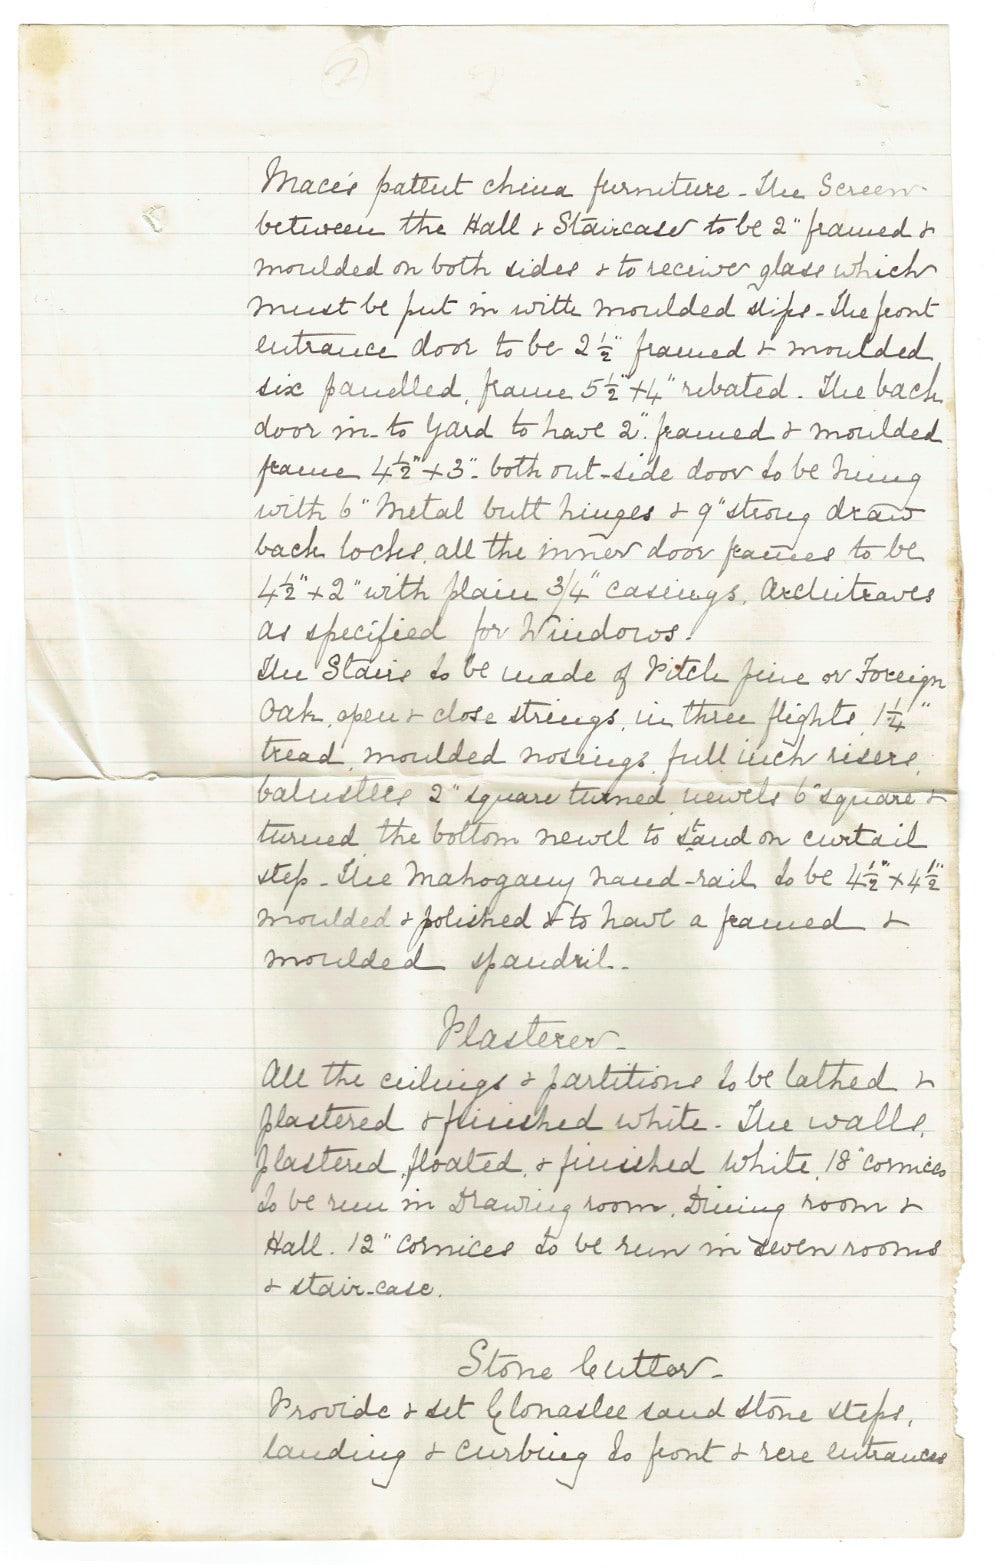 Mace's patent china furniture - The Screen
between the Hall & Staircase to be 2" framed &
moulded on both sides & to receive glass which
must be put in with moulded slips - The front
entrance door to be 2½" framed & moulded,
six panelled, frame 5½" + 4" rebated. The back
door in-to Yard to have 2" framed & moulded
frame 4½" + 3" - both out-side door to be hung
with 6" Metal butt hinges & 9" strong draw
back locks, all the inner door frames to be
4½" + 2" with plain 3/4" casings, Architraves
as specified for Windows.
The Stairs to be made of Pitch pine or Foreign
Oak, open & close strings, in three flights, 1¼"
tread, moulded nosings, full inch risers,
balusters 2" square turned newels 6" square &
turned the bottom newel to stand on curtail
step - The Mahogany hand-rail to be 4½" + 4½"
moulded & polished & to have a framed &
moulded spandril.
Plasterer -
All the ceilings & partitions to be lathed &
plastered & finished white - The walls,
plastered, floated, & finished white, 18" cornices
to be run in Drawing room, Dining room &
Hall. 12" cornices to be run in seven rooms
& stair-case.
Stone Cutter -
Provide & set Clonaslee sand stone steps,
landing & curbing to front & rere entrances